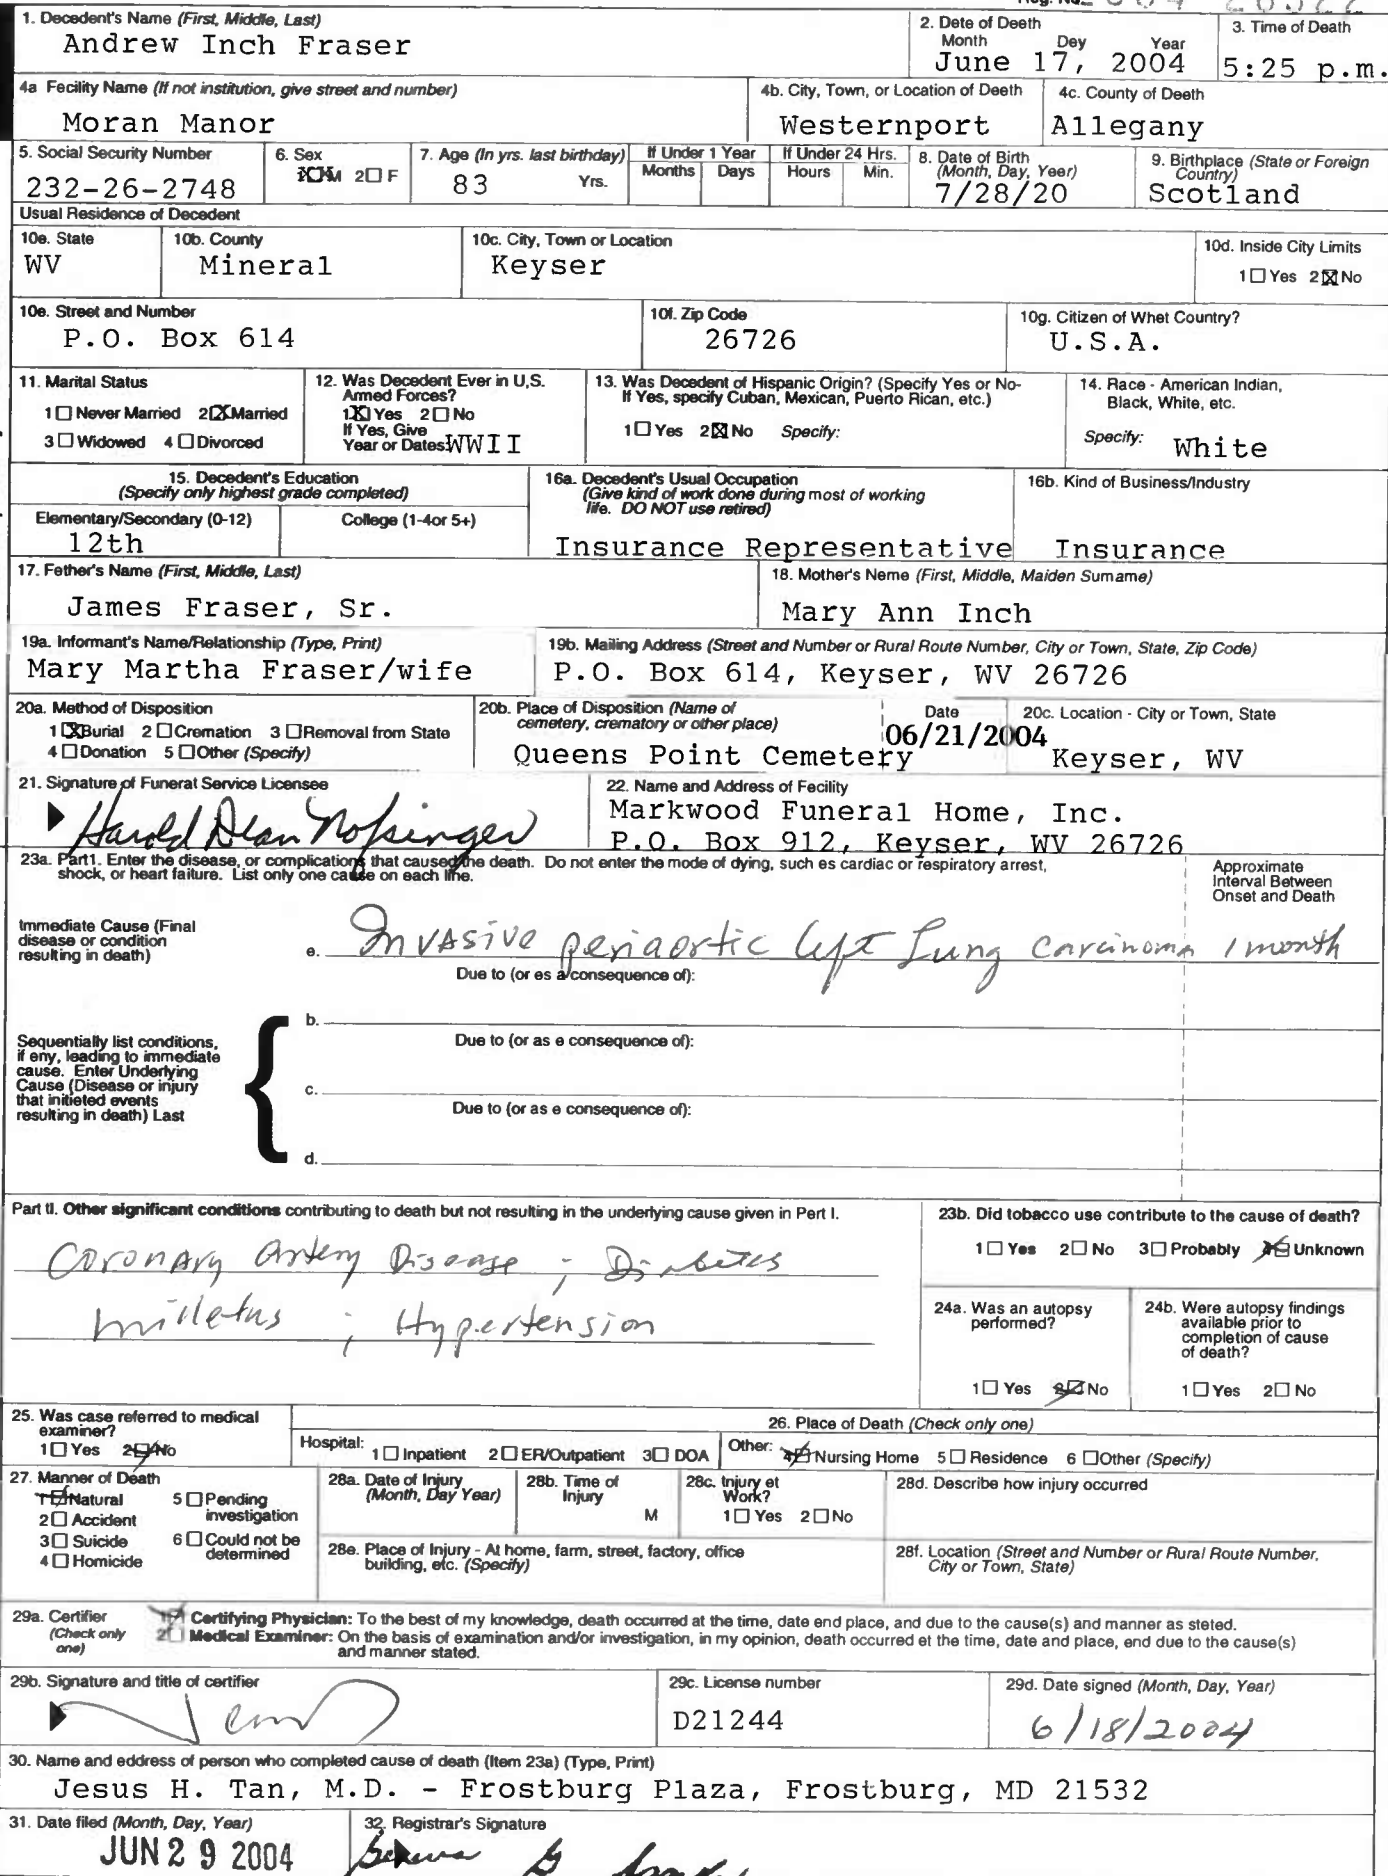 1. Decedent's Name (First, Middle, Last)
Andrew Inch Fraser
2. Dete of Deeth
Month Dey Year
June 17, 2004
3. Time of Death
5:25 p.m.
4a Fecility Name (If not institution, give street and number)
Moran Manor
4b. City, Town, or Location of Deeth
Westernport
4c. County of Deeth
Allegany
5. Social Security Number
232-26-2748
6. Sex
1☒M 2☐F
7. Age (In yrs. last birthday)
83 Yrs.
If Under 1 Year
Months Days
If Under 24 Hrs.
Hours Min.
8. Date of Birth
(Month, Day, Yeer)
7/28/20
9. Birthplace (State or Foreign
Country)
Scotland
Usual Residence of Decedent
10e. State
WV
10b. County
Mineral
10c. City, Town or Location
Keyser
10d. Inside City Limits
1☐Yes 2☒No
10e. Street and Number
P.O. Box 614
10f. Zip Code
26726
10g. Citizen of Whet Country?
U.S.A.
11. Marital Status
1☐Never Married 2☒Married
3☐Widowed 4☐Divorced
12. Was Decedent Ever in U.S.
Armed Forces?
1☒Yes 2☐No
If Yes, Give
Year or Dates: WWII
13. Was Decedent of Hispanic Origin? (Specify Yes or No-
If Yes, specify Cuban, Mexican, Puerto Rican, etc.)
1☐Yes 2☒No Specify:
14. Race - American Indian,
Black, White, etc.
Specify: White
15. Decedent's Education
(Specify only highest grade completed)
Elementary/Secondary (0-12)
12th
College (1-4or 5+)
16a. Decedent's Usual Occupation
(Give kind of work done during most of working
life. DO NOT use retired)
Insurance Representative
16b. Kind of Business/Industry
Insurance
17. Fether's Name (First, Middle, Last)
James Fraser, Sr.
18. Mother's Neme (First, Middle, Maiden Surname)
Mary Ann Inch
19a. Informant's Name/Relationship (Type, Print)
Mary Martha Fraser/wife
19b. Mailing Address (Street and Number or Rural Route Number, City or Town, State, Zip Code)
P.O. Box 614, Keyser, WV 26726
20a. Method of Disposition
1☒Burial 2☐Cremation 3☐Removal from State
4☐Donation 5☐Other (Specify)
20b. Place of Disposition (Name of
cemetery, crematory or other place)
Queens Point Cemetery
Date
06/21/2004
20c. Location - City or Town, State
Keyser, WV
21. Signature of Funeral Service Licensee
Harold Dean Nofsinger
22. Name and Address of Fecility
Markwood Funeral Home, Inc.
P.O. Box 912, Keyser, WV 26726
23a. Part1. Enter the disease, or complications that caused the death. Do not enter the mode of dying, such es cardiac or respiratory arrest,
shock, or heart failure. List only one cause on each line.
Approximate
Interval Between
Onset and Death
Immediate Cause (Final
disease or condition
resulting in death)
e. Invasive periaortic left Lung carcinoma 1 month
Due to (or es a consequence of):
b.
Due to (or as e consequence of):
Sequentially list conditions,
if eny, leading to immediate
cause. Enter Underlying
Cause (Disease or injury
that initieted events
resulting in death) Last
c.
Due to (or as e consequence of):
d.
Part II. Other significant conditions contributing to death but not resulting in the underlying cause given in Pert I.
Coronary Artery Disease ; Diabetes
milletus ; Hypertension
23b. Did tobacco use contribute to the cause of death?
1☐Yes 2☐No 3☐Probably 4☒Unknown
24a. Was an autopsy
performed?
1☐Yes 2☒No
24b. Were autopsy findings
available prior to
completion of cause
of death?
1☐Yes 2☐No
25. Was case referred to medical
examiner?
1☐Yes 2☒No
26. Place of Death (Check only one)
Hospital: 1☐Inpatient 2☐ER/Outpatient 3☐DOA
Other: 4☒Nursing Home 5☐Residence 6☐Other (Specify)
27. Manner of Death
1☒Natural
2☐Accident
3☐Suicide
4☐Homicide
5☐Pending
investigation
6☐Could not be
determined
28a. Date of Injury
(Month, Day Year)
28b. Time of
Injury
M
28c. Injury et
Work?
1☐Yes 2☐No
28d. Describe how injury occurred
28e. Place of Injury - At home, farm, street, factory, office
building, etc. (Specify)
28f. Location (Street and Number or Rural Route Number,
City or Town, State)
29a. Certifier
(Check only
one)
1☒Certifying Physician: To the best of my knowledge, death occurred at the time, date end place, and due to the cause(s) and manner as steted.
2☐Medical Examiner: On the basis of examination and/or investigation, in my opinion, death occurred et the time, date and place, end due to the cause(s)
and manner stated.
29b. Signature and title of certifier
29c. License number
D21244
29d. Date signed (Month, Day, Year)
6/18/2004
30. Name and eddress of person who completed cause of death (Item 23a) (Type, Print)
Jesus H. Tan, M.D. - Frostburg Plaza, Frostburg, MD 21532
31. Date filed (Month, Day, Year)
JUN 29 2004
32. Registrar's Signature